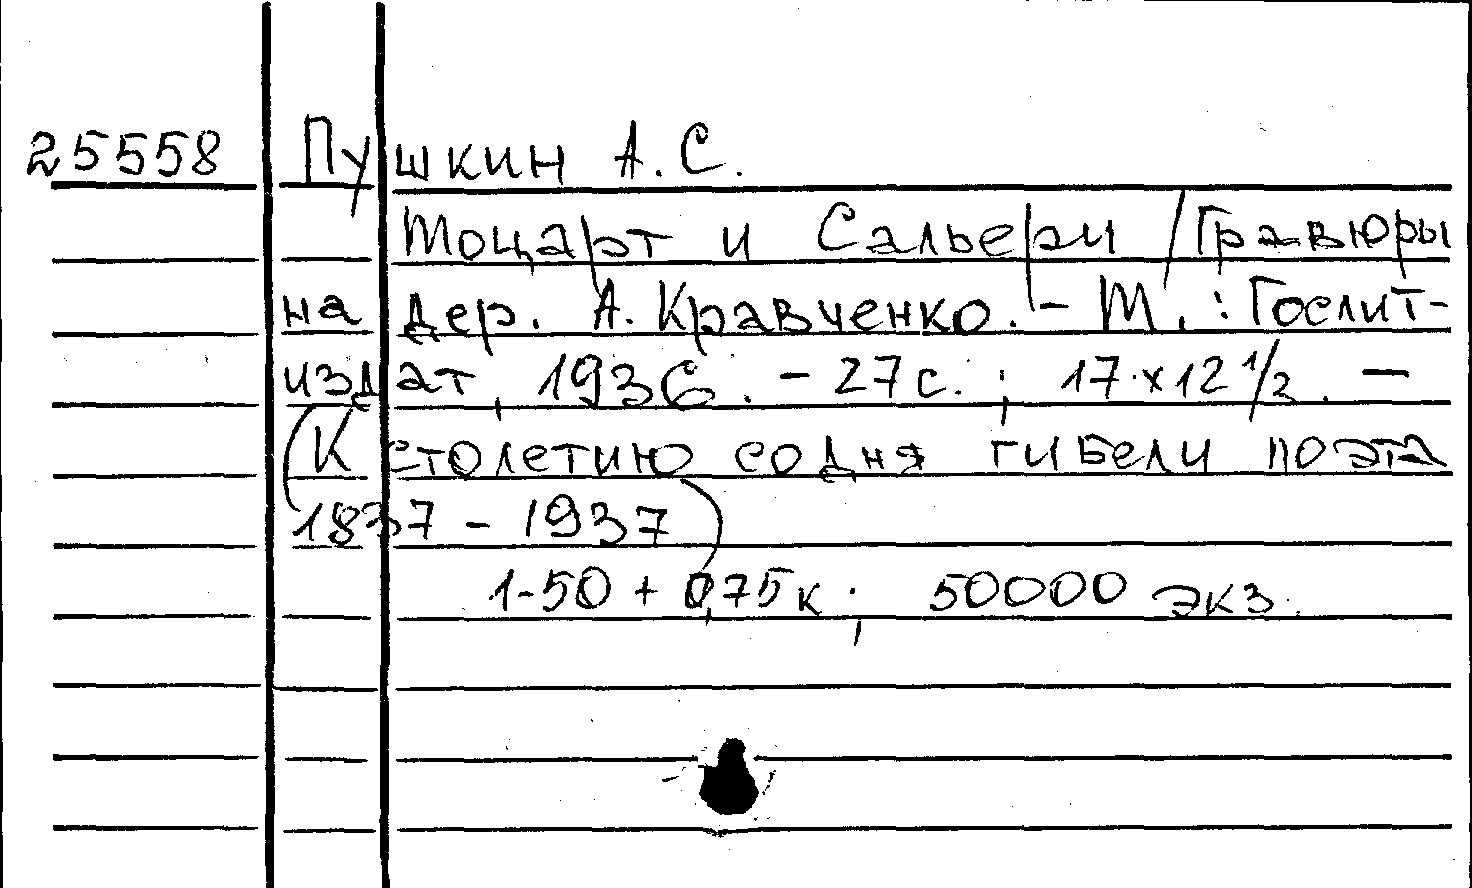 25558 Пушкин А.С.
Моцарт и Сальери / Гравюры
на дер. А. Кравченко. - М. : Гослит-
издат, 1936. - 27 с. ; 17 х 12 1/2. -
(К столетию со дня гибели поэта
1837 - 1937)
1-50 + 0,75 к. ; 50000 экз.